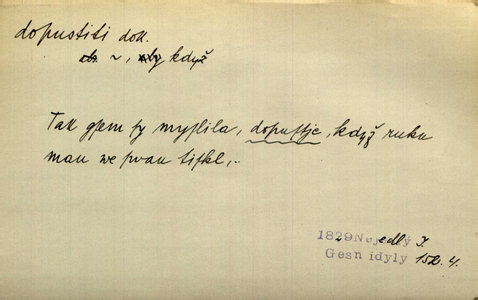 dopustiti dok.
~, když
Tak gsem sy myslila, dopustje, když ruku
mau we swau tiskl,..
1829 Nejedlý J.
Gesn idyly 152. 4.